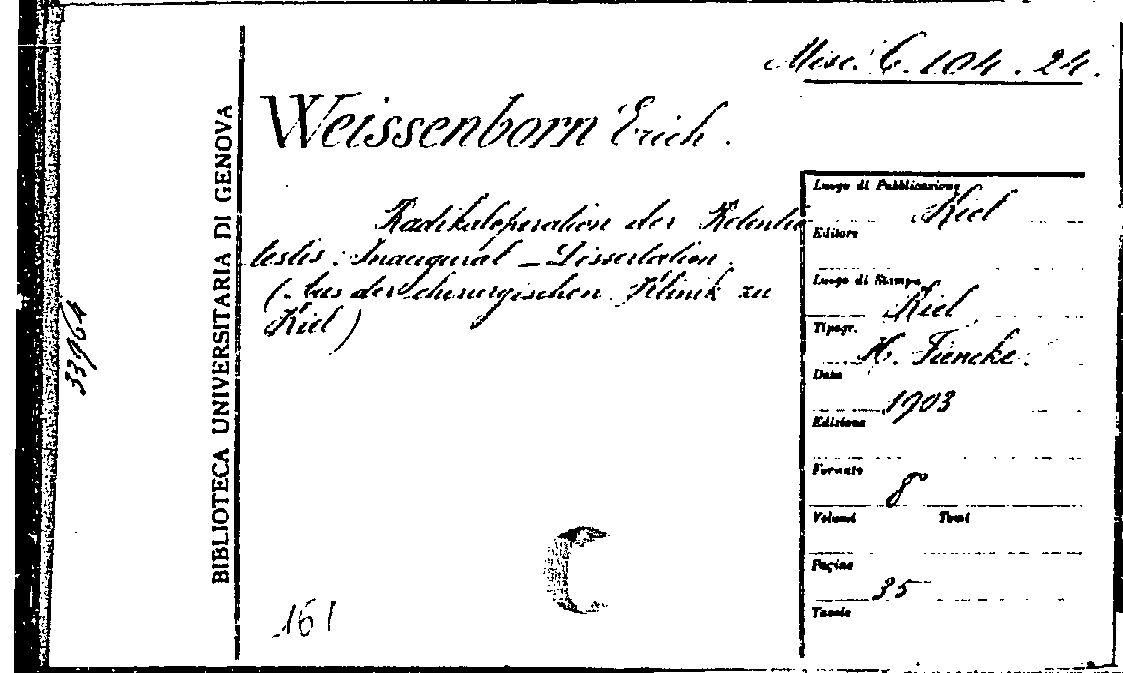 Misc. C. 104. 24.
Weissenborn Erich.
Radikaloperation der Retentio
testis. Inaugural - Dissertation.
(Aus der chirurgischen Klinik zu
Kiel)
BIBLIOTECA UNIVERSITARIA DI GENOVA
Luogo di Pubblicazione Kiel
Editore
Luogo di Stampa Kiel
Tipogr. H. Fiencke.
Data 1903
Edizione
Formato 8
Volumi Tomi
Pagine 35
Tavole
161